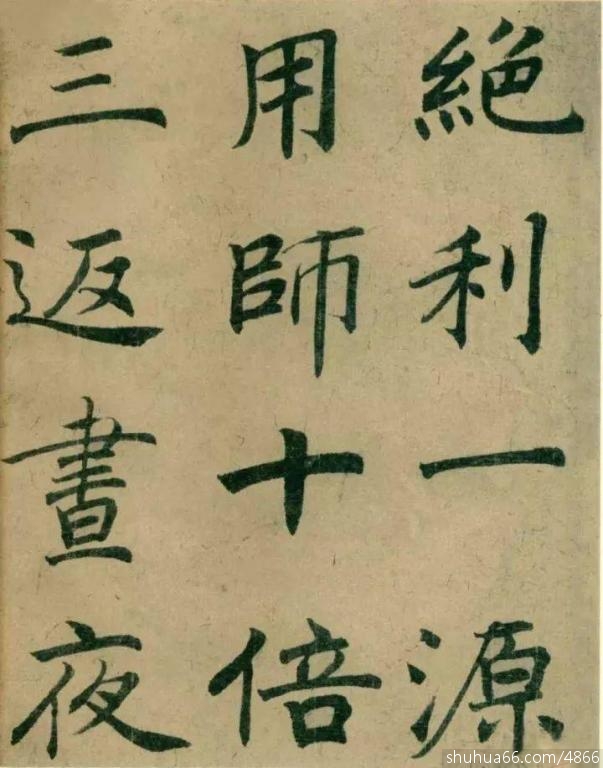 絶利一源
用師十倍
三返晝夜
shuhua66.com/4866